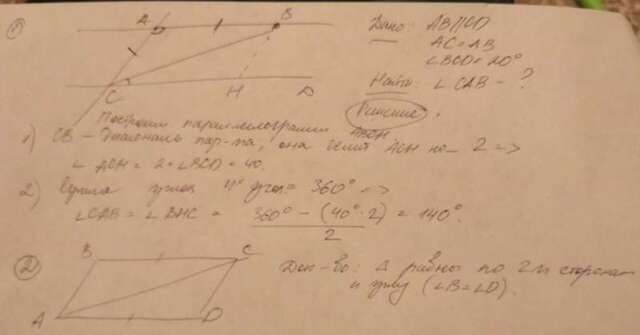 ①
A B
C H D
Дано: AB||CD
AC=AB
∠BCD=20°
Найти: ∠CAB - ?
Решение:
Построим параллелограмм ABCH
1) CB - Диагональ пар-ма, она делит ACH на 2 =>
∠ACH = 2*∠BCD = 40.
2) Сумма углов 4х уг. = 360° =>
∠CAB = ∠BHC = 360° - (40°·2) / 2 = 140°.
②
B C
A D
Док-во: Δ равны по 2м сторонам
и углу (∠B=∠D).